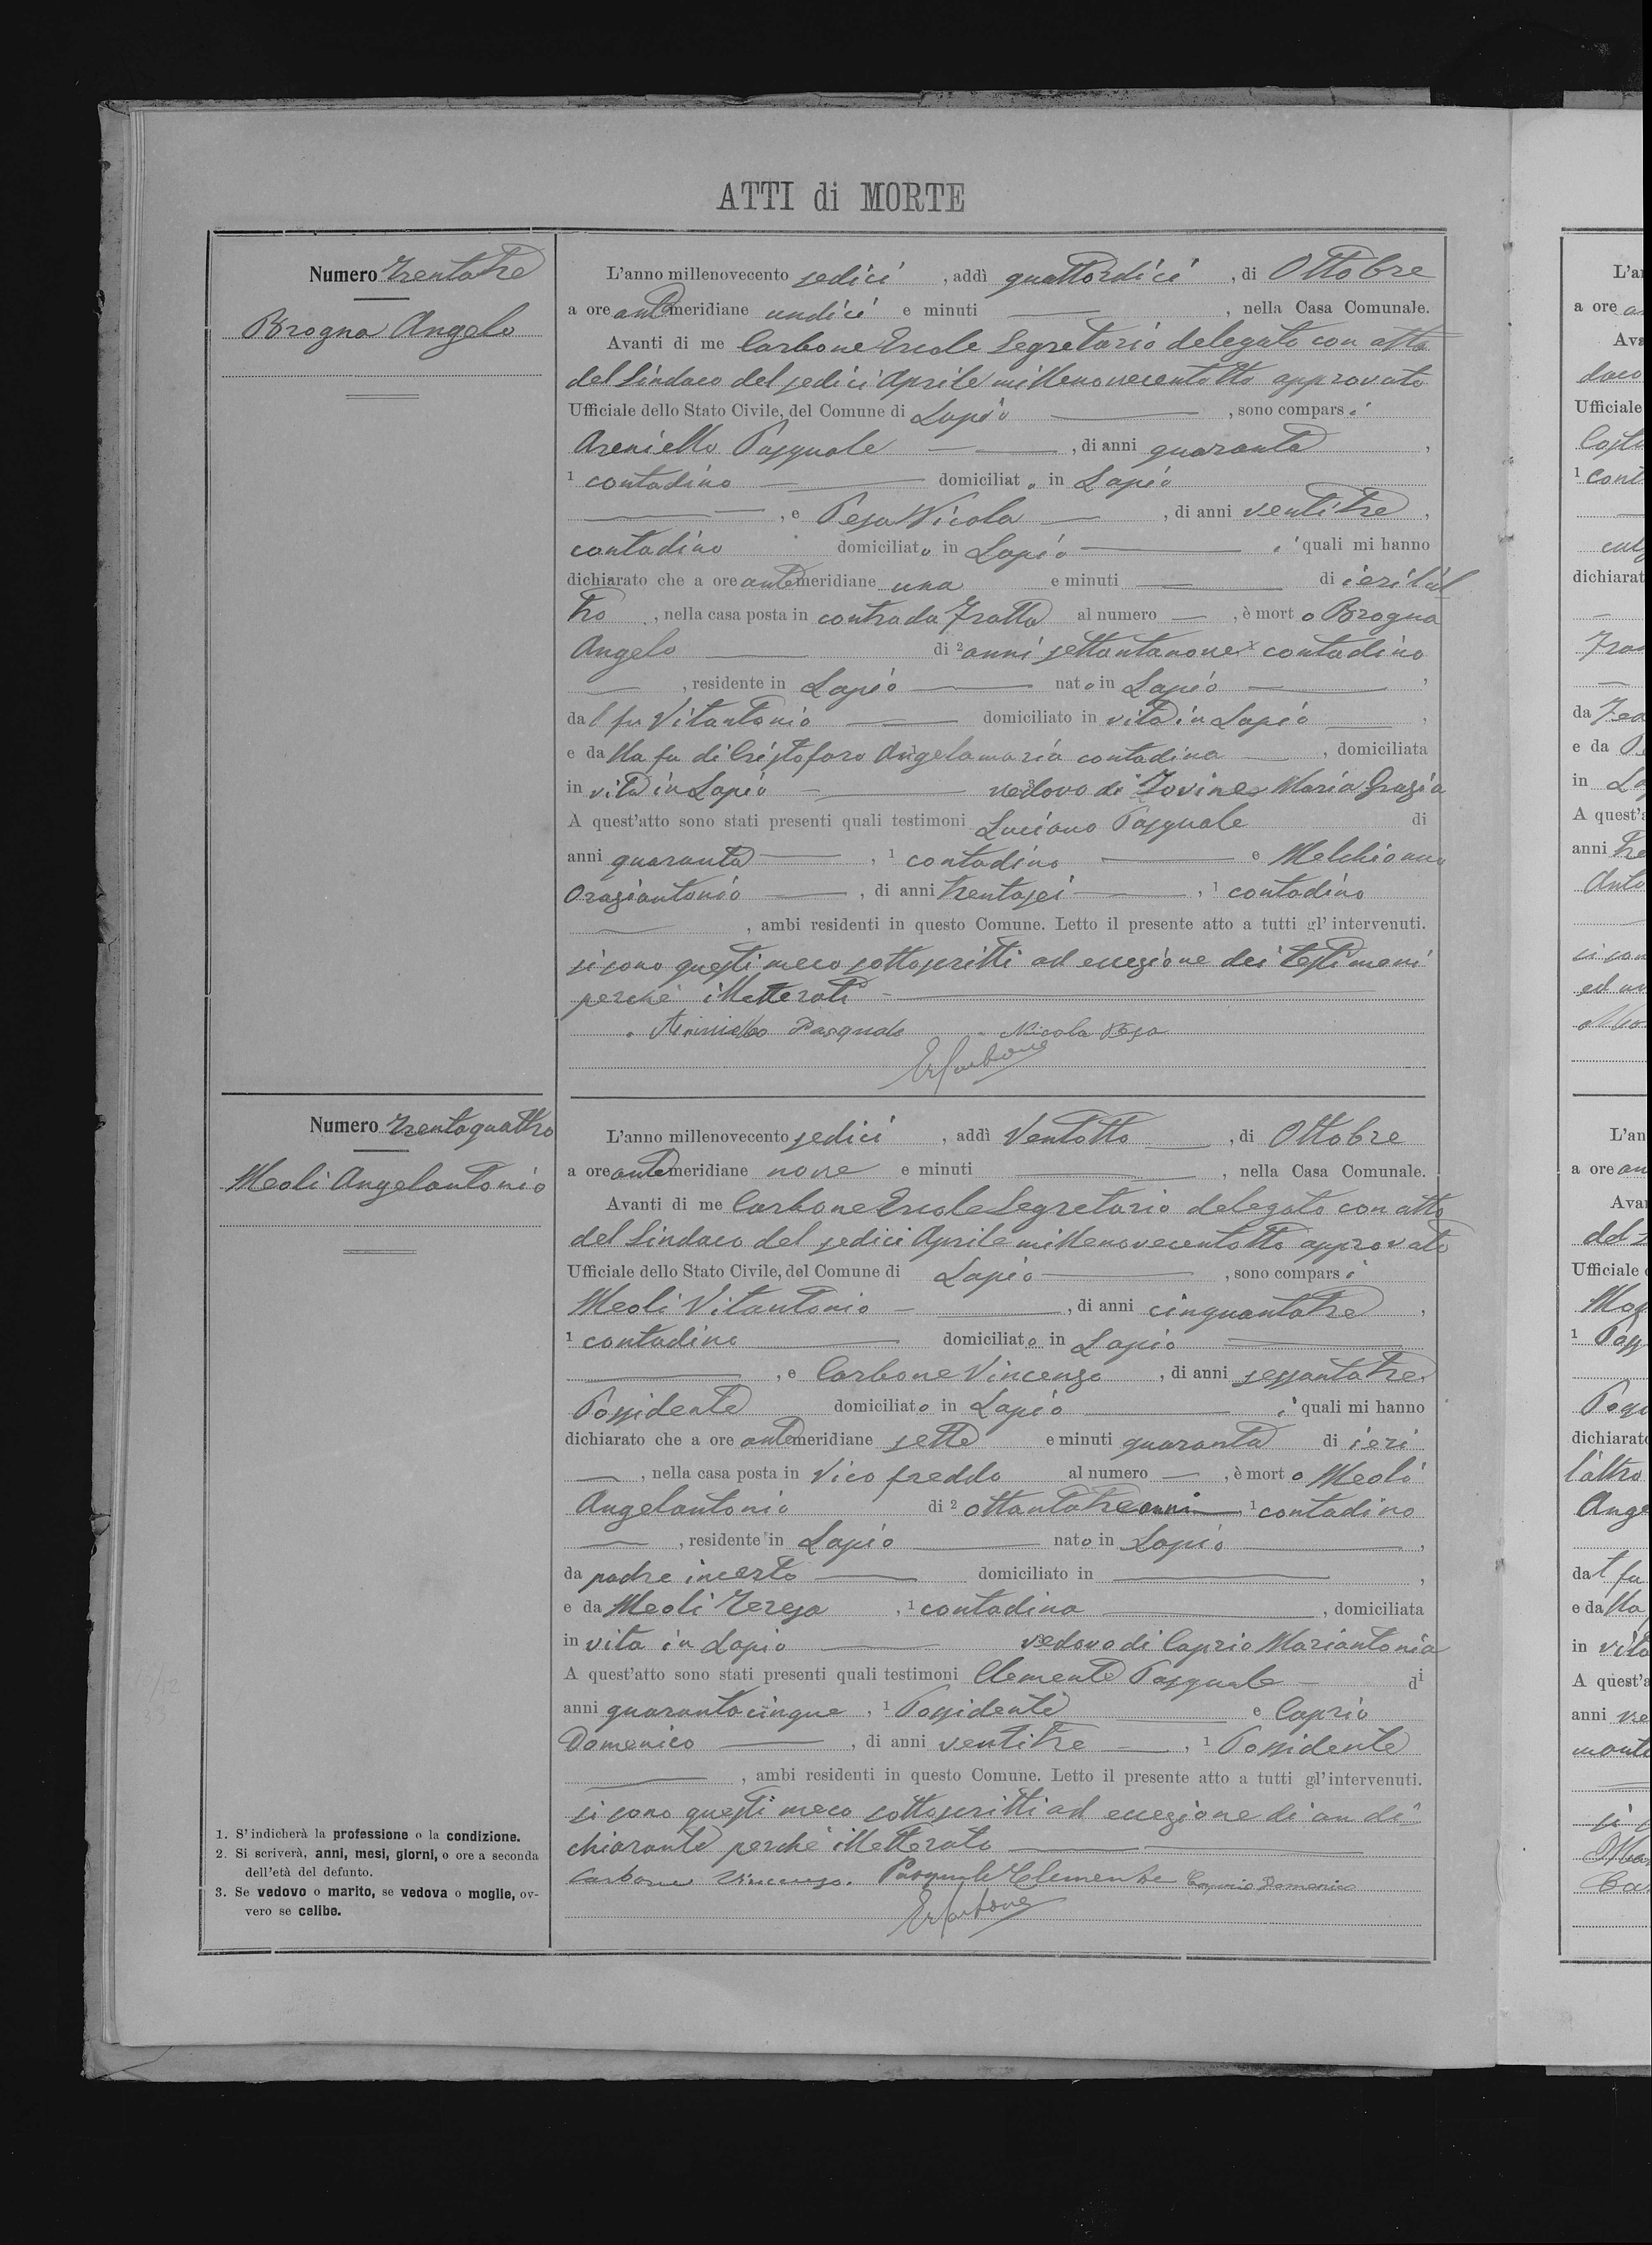 ATTI di MORTE
Numero Trentatre
Brogna Angelo
L'anno millenovecento sedici, addì quattordici, di Ottobre
a ore antimeridiane undici e minuti —, nella Casa Comunale.
Avanti di me Carbone Ercole Segretario delegato con atto
del Sindaco del sedici Aprile millenovecentotto approvato
Ufficiale dello Stato Civile, del Comune di Lapio —, sono comparsi
Areniello Pasquale —, di anni quaranta,
1 contadino — domiciliato in Lapio
—, e Pesa Nicola —, di anni ventitre,
contadino domiciliato in Lapio — i quali mi hanno
dichiarato che a ore antimeridiane una e minuti — di ieri l'al
tro, nella casa posta in contrada Fratta al numero —, è morto Brogna
Angelo — di 2 anni settantanove contadino
—, residente in Lapio — nato in Lapio —,
dal fu Vitantonio — domiciliato in vita in Lapio —,
e dalla fu di Cristofaro Angelamaria contadina —, domiciliata
in vita in Lapio — vedovo di Iovine Maria Grazia
A quest'atto sono stati presenti quali testimoni Luciano Pasquale di
anni quaranta —, 1 contadino — e Melchionna
Oraziantonio —, di anni trentasei —, 1 contadino
—, ambi residenti in questo Comune. Letto il presente atto a tutti gl'intervenuti.
si sono questi meco sottoscritti ad eccezione dei testimoni
perchè illetterati —
Areniello Pasquale Nicola Pesa
ErCarbone
Numero Trentaquattro
Meoli Angelantonio
L'anno millenovecento sedici, addì Ventotto —, di Ottobre
a ore antemeridiane nove e minuti —, nella Casa Comunale.
Avanti di me Carbone Ercole Segretario delegato con atto
del Sindaco del sedici Aprile millenovecentotto approvato
Ufficiale dello Stato Civile, del Comune di Lapio —, sono comparsi
Meoli Vitantonio —, di anni cinquantatre,
1 contadino — domiciliato in Lapio —
—, e Carbone Vincenzo, di anni sessantatre
Possidente domiciliato in Lapio — i quali mi hanno
dichiarato che a ore antemeridiane sette e minuti quaranta di ieri
—, nella casa posta in Vico freddo al numero —, è morto Meoli
Angelantonio di 2 ottantatre anni 1 contadino
—, residente in Lapio — nato in Lapio —,
da padre incerto — domiciliato in —,
e da Meoli Teresa, 1 contadina —, domiciliata
in vita in Lapio — vedovo di Caprio Mariantonia
A quest'atto sono stati presenti quali testimoni Clemente Pasquale — di
anni quarantacinque, 1 Possidente — e Caprio
Domenico —, di anni ventitre —, 1 Possidente
—, ambi residenti in questo Comune. Letto il presente atto a tutti gl'intervenuti.
si sono questi meco sottoscritti ad eccezione di un di
chiarante perchè illetterato —
Carbone Vincenzo. Pasquale Clemente Caprio Domenico
ErCarbone
1. S'indicherà la professione o la condizione.
2. Si scriverà, anni, mesi, giorni, o ore a seconda
dell'età del defunto.
3. Se vedovo o marito, se vedova o moglie, ov-
vero se celibe.